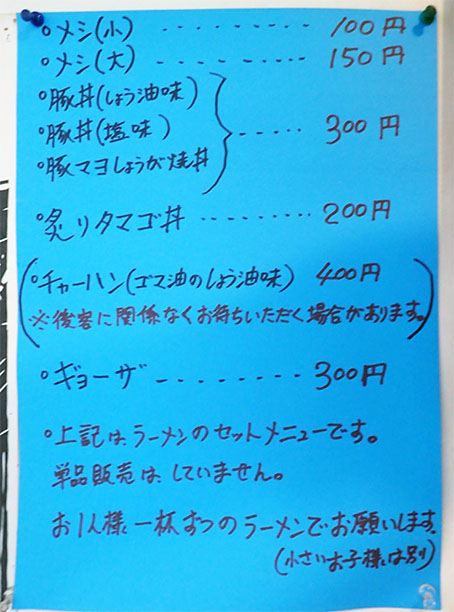 ・メシ(小) -------- 100円
・メシ(大) -------- 150円
・豚丼(しょう油味)
・豚丼(塩味) ------ 300円
・豚マヨしょうが焼丼
・炙りタマゴ丼 -------- 200円
・チャーハン(ゴマ油のしょう油味) 400円
※後客に関係なくお待ちいただく場合があります。
・ギョーザ -------- 300円
・上記はラーメンのセットメニューです。
単品販売は、していません。
お1人様一杯ずつのラーメンでお願いします。
(小さいお子様は別)